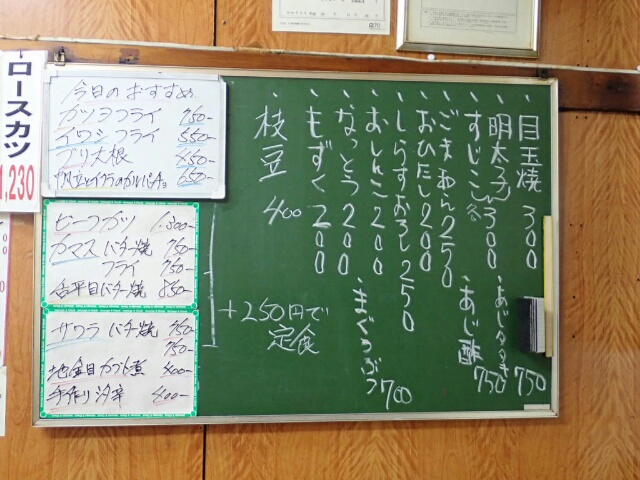 ロースカツ
1,230
今日のおすすめ
カツヲフライ 750-
イワシフライ 550-
ブリ大根 450-
帆立とイクラのカルパッチョ 650-
ビーフカツ 1,300-
カマスバター焼 750-
フライ 750-
舌平目バター焼 850-
サワラバター焼 750-
750-
地金目カブト煮 400-
手作り塩辛 400-
目玉焼 300
明太子 300
すじこ
ごまあえ 250
おひたし 200
しらすおろし 250
おしんこ 200
なっとう 200
もずく 200
枝豆 400
あじタタキ 750
あじ酢 750
まぐろぶつ 700
+250円で
定食